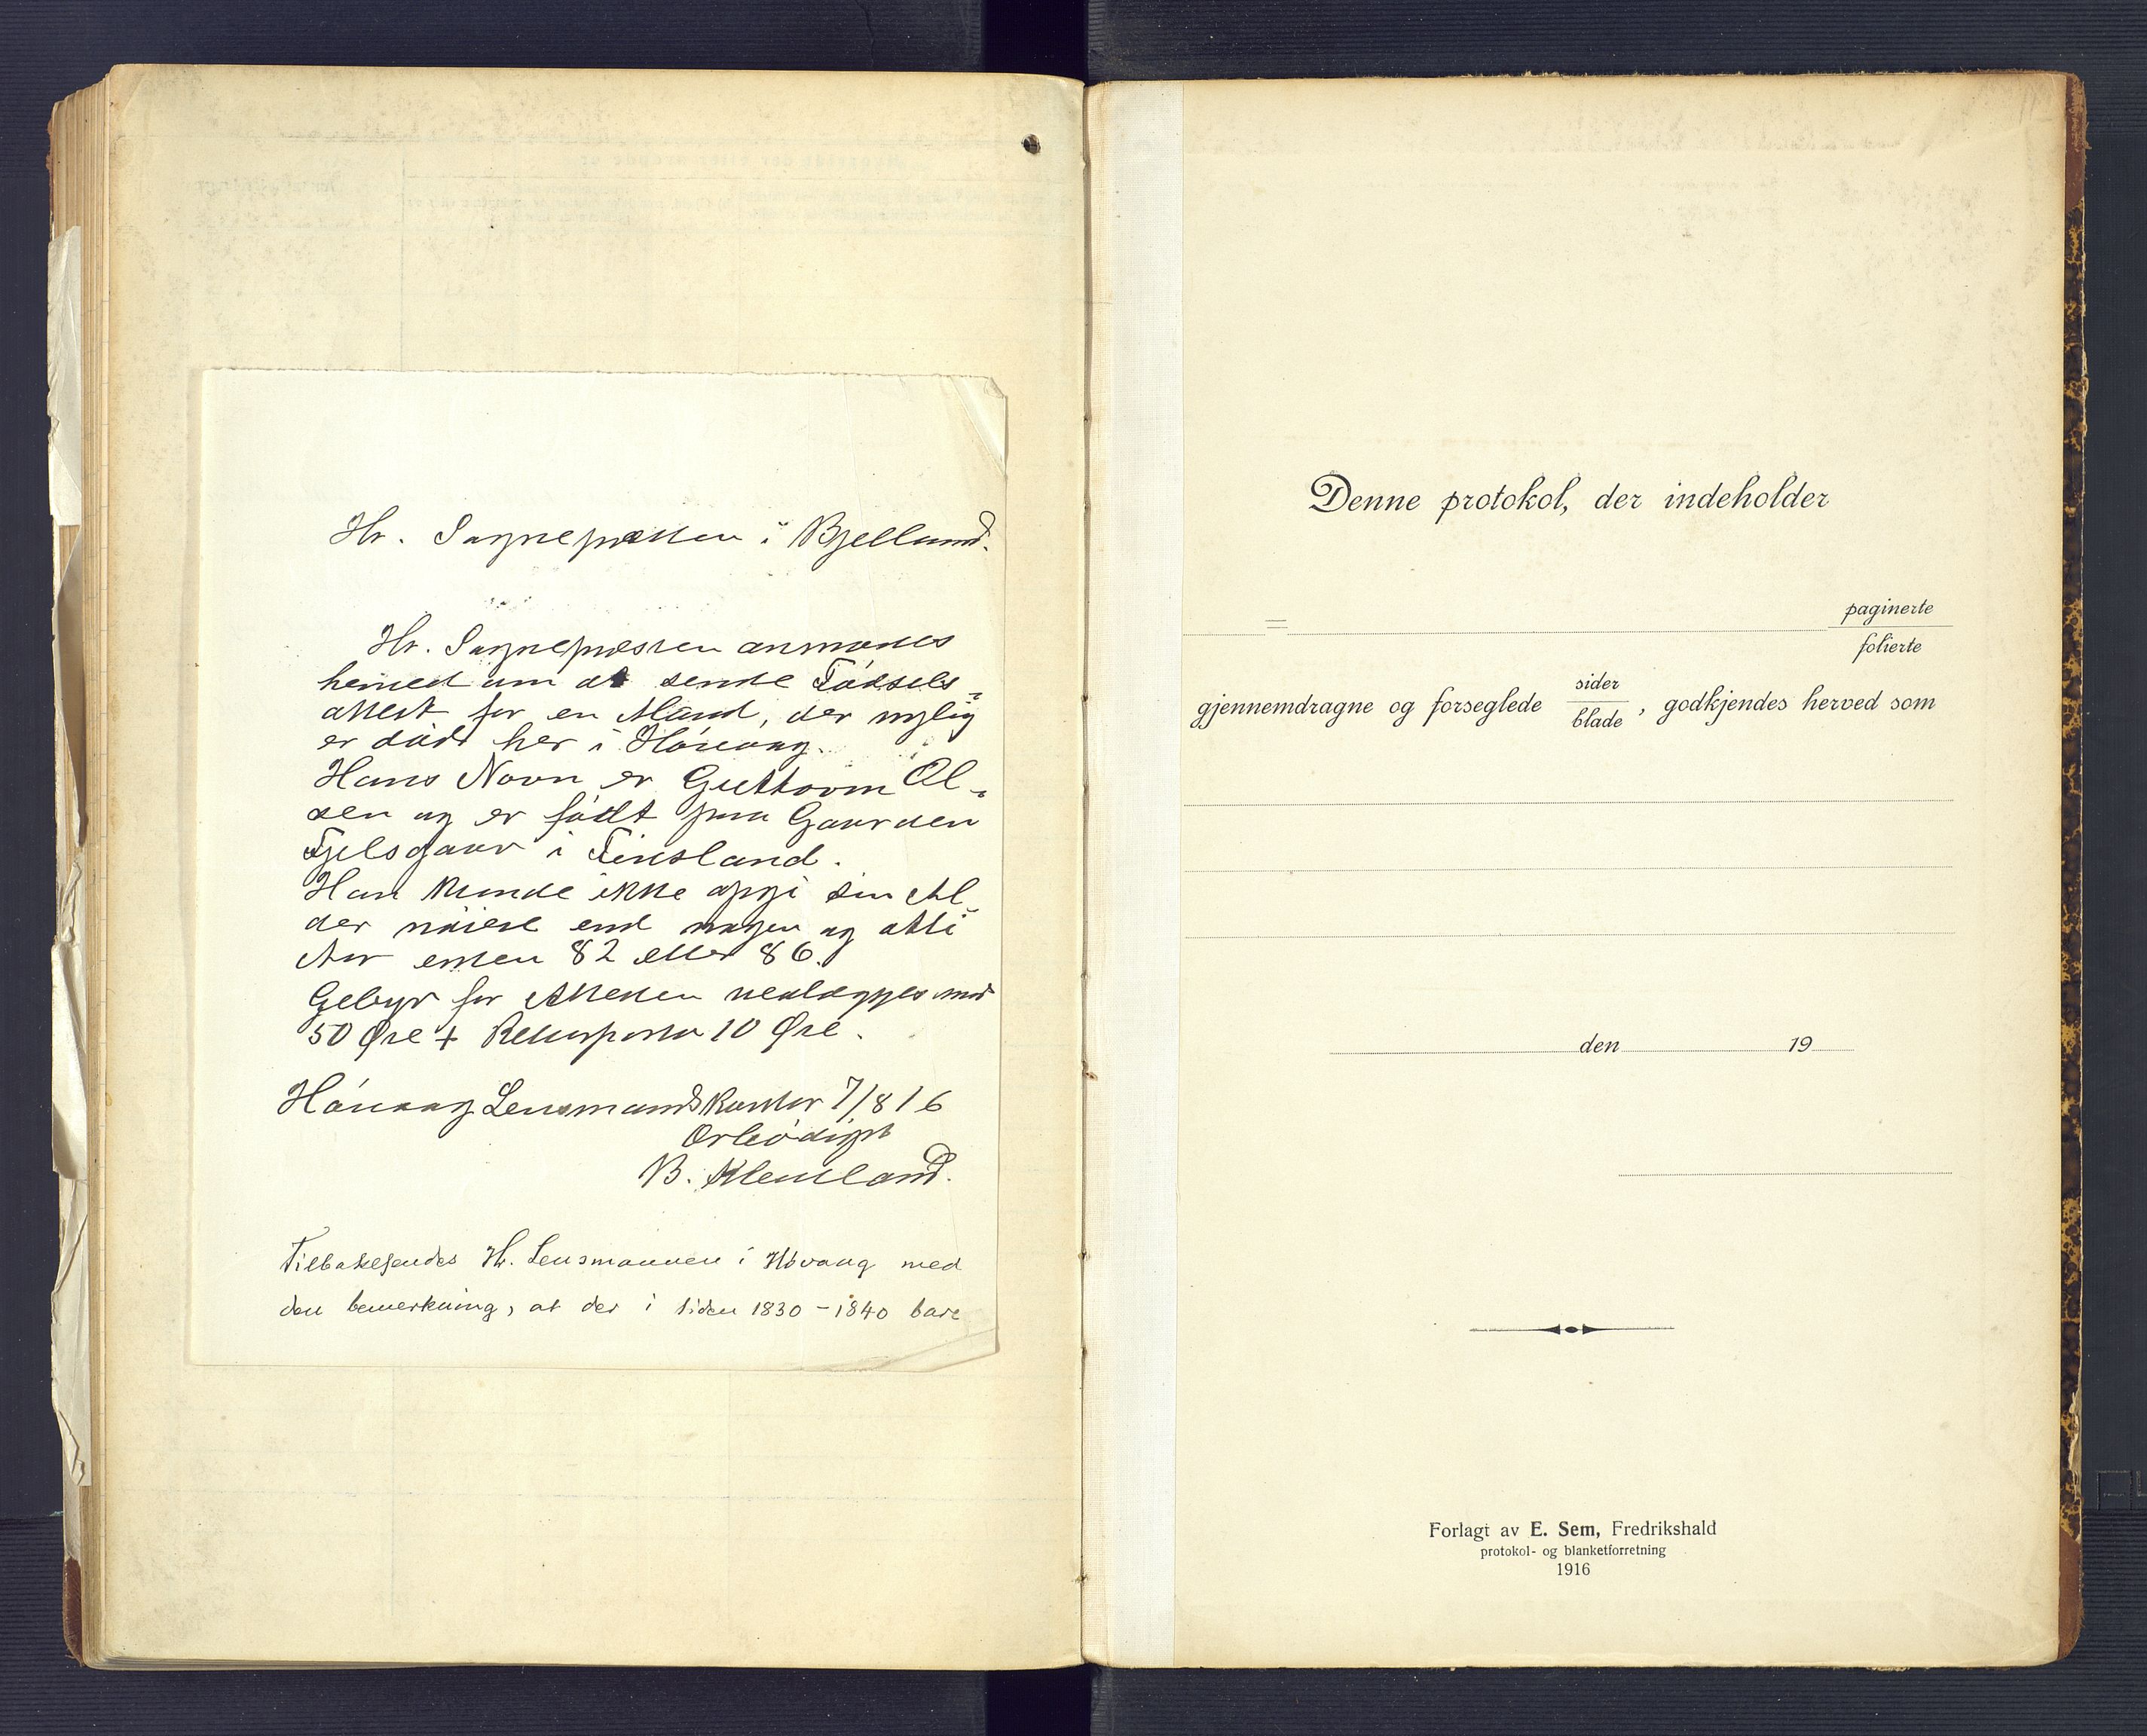 Hr. Sognepresten i Bjelland.
Hr. Sognepresten anmodes
herved om at sende Fødsels-
attest for en Mand, der nylig
er død her i Høvaag.
Hans Navn er Guttorm Ol-
sen og er født paa Gaarden
Fjelsgaar i Finsland.
Han kunde ikke opgi sin Al-
der nøiere end nogen og otti
Aar enten 82 eller 86.
Gebyr for Attesten vedlægges med
50 Øre + Returporto 10 Øre.
Høvaag Lensmandskontor 7/8 16
Ærbødigst
B.
Tilbakesendes Hr. Lensmannen i Høvaag med
den bemerkning, at der i tiden 1830-1840 bare
Denne protokol, der indeholder
=
paginerte
folierte
gjennemdragne og forseglede sider / blade, godkjendes herved som
den 19
Forlagt av E. Sem, Fredrikshald
protokol- og blanketforretning
1916